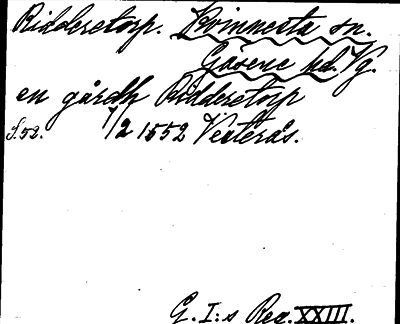 Ridderetorp. Kvinnesta sn.
Gäsene hd. Vg.
en gårdh Ridderetorp
S.52. 7/2 1552 Vesterås.
G. I:s Reg. XXIII.